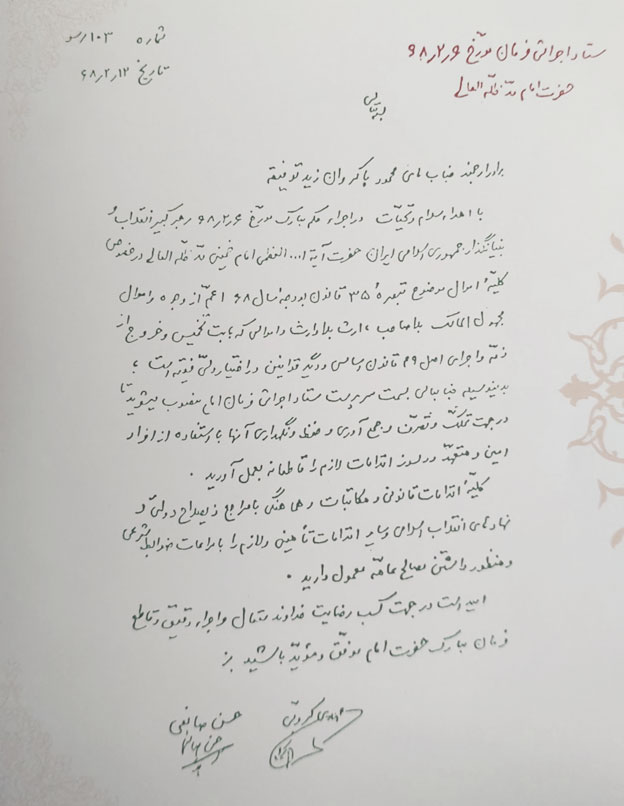 ستاد اجرائی فرمان مورّخ ۶۸٫۲٫۶
حضرت امام مدّ ظلّه العالی
شماره ۱۰۳٫س
تاریخ ۶۸٫۲٫۱۲
بسمه تعالی
برادر ارجمند جناب آقای محمود پاکروان زید توفیقه
با اهداء سلام و تحیّات در اجراء حکم مبارک مورّخ ۶۸٫۲٫۶ رهبر کبیر انقلاب و
بنیانگذار جمهوری اسلامی ایران حضرت آیة ا... العظمی امام خمینی مدّ ظلّه العالی در خصوص
کلیّهٔ اموال موضوع تبصرهٔ ۳۵ قانون بودجهٔ سال ۶۸ اعمّ از وجوه و اموال
مجهول المالک بلاصاحب، ارث بلاوارث و اموالی که بابت تخمیس و خروج از
ذمّه و اجرای اصل ۴۹ قانون اساسی و دیگر قوانین در اختیار ولیّ فقیه است؛
بدینوسیله جنابعالی بسمت سرپرست ستاد اجرائی فرمان امام منصوب میشوید تا
در جهت تملّک و تصرّف و جمع آوری و حفظ و نگهداری آنها با استفاده از افراد
امین و متعهّد و دلسوز اقدامات لازم را قاطعانه بعمل آورید.
کلیّهٔ اقدامات قانونی و مکاتبات و هماهنگی با مراجع ذیصلاح دولتی و
نهادهای انقلاب اسلامی و سایر اقدامات تأمینی و لازم را با مراعات ضوابط شرعی
و منظور داشتن مصالح عامّه معمول دارید.
امید است در جهت کسب رضایت خداوند متعال و اجراء دقیق و قاطع
فرمان مبارک حضرت امام موفّق و مؤیّد باشید
مهدی کروبی
حسن صانعی